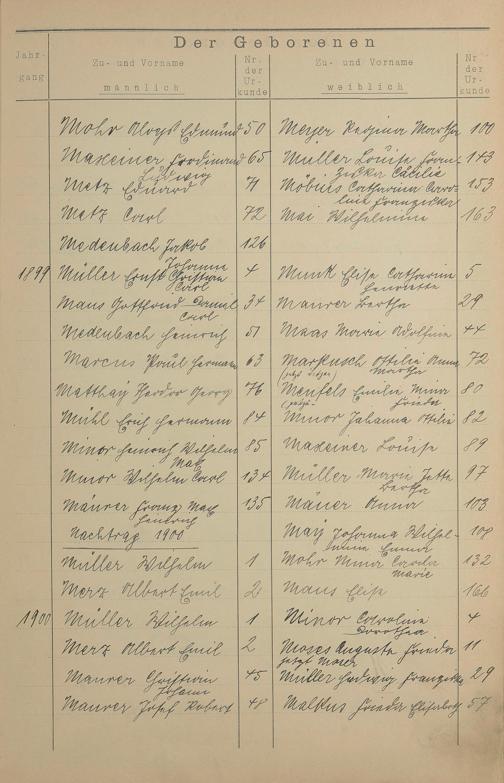 Der Geborenen
Jahr-
gang
Zu- und Vorname
männlich
Nr.
der
Ur-
kunde
Zu- und Vorname
weiblich
Nr
der
Ur-
kunde
Mohr Aloys Edmund 50 Meyer Regina Martha 100
Maxeiner Ferdinand 65 Müller Louise Fran- 143
Ludwig ziska Cäcilie
Metz Eduard 71 Möbius Catharina Caro- 153
line Franziska
Metz Carl 72 Mai Wilhelmine 163
Medenbach Jakob 126
Johann
1899 Müller Ernst Christian 4 Munk Elise Catharina 5
Carl Henriette
Maus Gottfried Daniel 34 Maurer Bertha 29
Carl
Medenbach Heinrich 51 Maas Marie Adolfine 44
Marcus Paul Hermann 63 Markusch Ottilie Anna 72
(jetzt Martha
Matthäy Theodor Georg 76 Menfels Emilie Mina 80
Frieda
Mühl Erich Hermann 84 Minor Johanna Ottilie 82
Minor Heinrich Wilhelm 85 Maxeiner Louise 89
Max
Minor Wilhelm Carl 134 Müller Marie Jette 97
Bertha
Maurer Franz Max 135 Mäuer Anna 103
Heinrich
Nachtrag 1900 May Johanna Wilhel- 108
mine Emma
Müller Wilhelm 1 Mohr Mina Carola 132
Marie
Merz Albert Emil 2 Maus Elise 166
1900 Müller Wilhelm 1 Minor Caroline 4
Dorothea
Merz Albert Emil 2 Moses Auguste Frieda 11
jetzt
Maurer Christian 45 Müller Hedwig Franziska 29
Johann
Maurer Josef Robert 48 Malkus Frieda Elisabeth 57